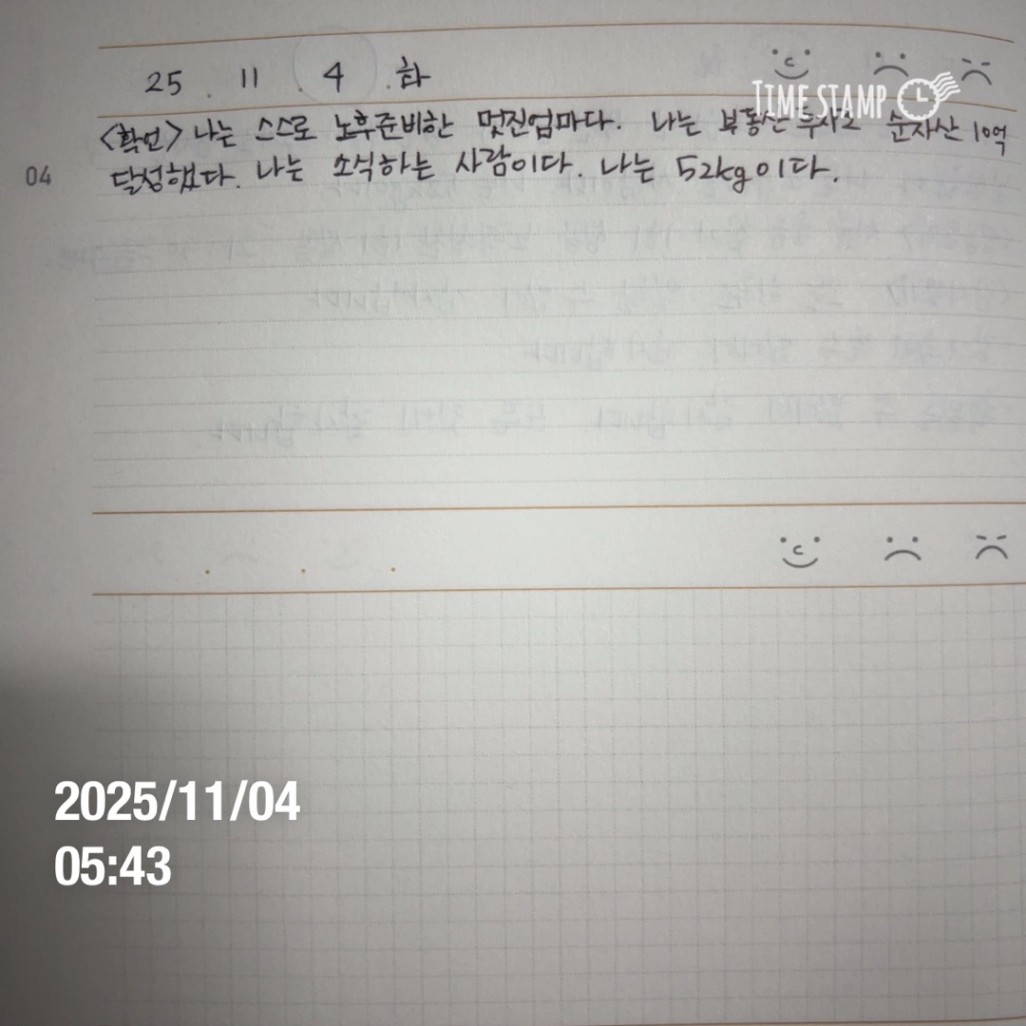 25 . 11 . 4 . 화
TIME STAMP
04
<확언> 나는 스스로 노후준비한 멋진엄마다. 나는 부동산 투자로 순자산 10억
달성했다. 나는 소식하는 사람이다. 나는 52kg이다.
2025/11/04
05:43